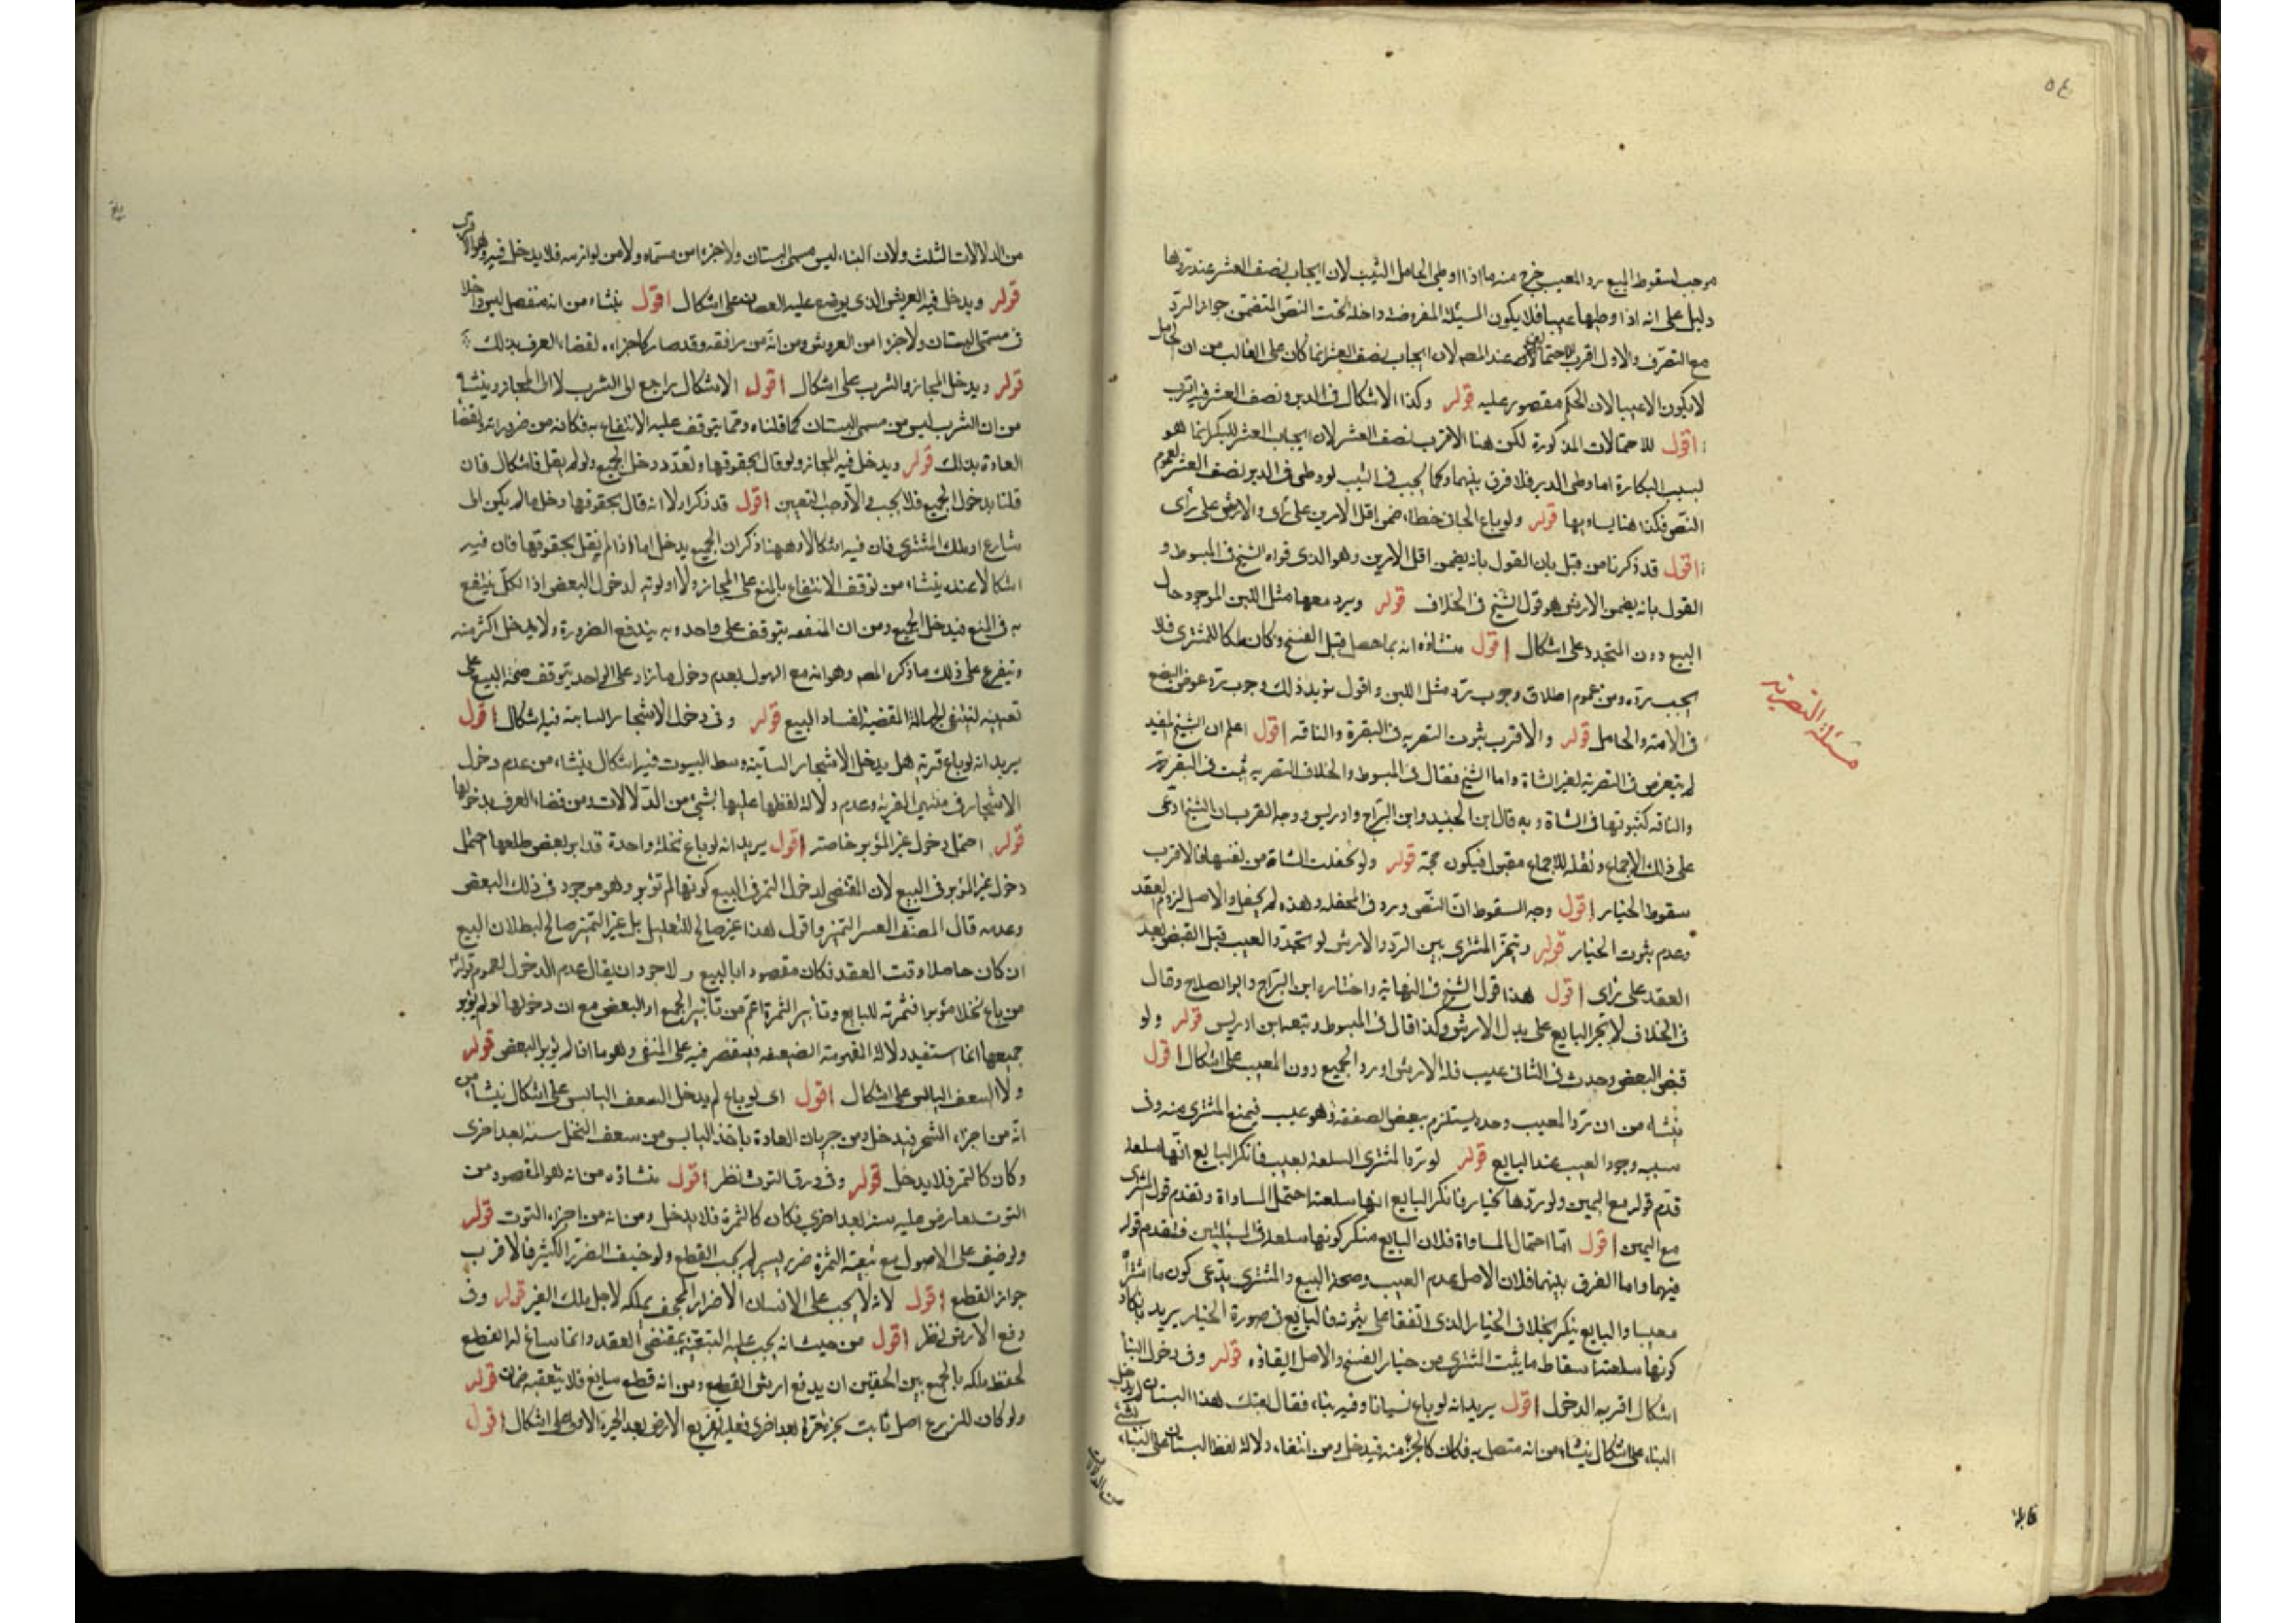 ٥٤
موجب لسقوط البيع برد المعيب خرج منه ما اذا وطى الحامل الثيب لان ايجاب نصف العشر عند ردها
دليل على انه اذا وطيها عيبا فلا يكون المسئلة المفروضة داخلة تحت النص المتضمن جواز الرد
مع التصرف والاول اقرب عند المصـ لان ايجاب نصف العشر انما كان على الغالب من ان الحامل
لا يكون الا ثيبا لان الحكم مقصور عليه قوله وكذا الاشكال فى الدبر ونصف العشر فيه اقرب
اقول للاحتمالات المذكورة لكن هنا الاقرب نصف العشر لان ايجاب العشر للبكر انما هو
لسبب البكارة اما وطى الدبر فلا فرق بينهما وكما يجب فى الثيب لو وطى فى الدبر نصف العشر لعموم
النص فكذا هنا يساويها قوله ولو باع الجانى خطاء ضمن اقل الامرين على رأى والارش على رأى
اقول قد ذكرنا من قبل بان القول بانه يضمن اقل الامرين وهو الذى قواه الشيخ فى المبسوط و
القول بانه يضمن الارش هو قول الشيخ فى الخلاف قوله ويرد معها مثل اللبن الموجود حال
البيع دون المتجدد على اشكال اقول منشاؤه انه نما حصل قبل الفسخ وكان ملكا للمشترى فلا
يجب رده ومن عموم اطلاق وجوب رد مثل اللبن واقول يؤيد ذلك وجوب رد عوض البضع
فى الامة والحامل قوله والاقرب ثبوت التصرية فى البقرة والناقة اقول اعلم ان الشيخ المفيد
لم يتعرض فى التصرية لغير الشاة واما الشيخ فقال فى المبسوط والخلاف التصرية يثبت فى البقرة
والناقة كثبوتها فى الشاة وبه قال ابن الجنيد وابن البراج وادريس ووجه القرب ان الشيخ ادعى
على ذلك الاجماع ونقله للاجماع مقبول فيكون حجة قوله ولو تحفلت الشاة من نفسها فالاقرب
سقوط الخيار اقول وجه السقوط ان النص ورد فى المحفلة وهذه لم يحفل والاصل لزوم العقد
وعدم ثبوت الخيار قوله ويتخير المشترى بين الرد والارش لو تجدد العيب قبل القبض بعد
العقد على رأى اقول هذا قول الشيخ فى النهاية واختاره ابن البراج وابو الصلاح وقال
فى الخلاف لا يجبر البايع على بدل الارش وكذا قال فى المبسوط وتبعه ابن ادريس قوله ولو
قبض البعض وحدث فى الثانى عيب فله الارش او رد الجميع دون المعيب على اشكال اقول
ينشاء من ان رد المعيب وحده يستلزم تبعض الصفقة وهو عيب فيمنع المشترى منه وفى
سببه وجود العيب عند البايع قوله لو رد المشترى السلعة بعيب فانكر البايع انها سلعته
قدم قوله مع اليمين ولو ردها بخيار فانكر البايع انها سلعته احتمل المساواة وتقدم قول المشترى
مع اليمين اقول اما احتمال المساواة فلان البايع منكر كونها سلعته فى المسئلتين فتقدم قوله
فيهما واما الفرق بينهما فلان الاصل عدم العيب وصحة البيع والمشترى يدعى كون ما اشتراه
معيبا والبايع ينكر بخلاف الخيار الذى اتفقا على ثبوته فالبايع فى صورة الخيار يريد بانكار
كونها سلعته اسقاط ما يثبت للمشترى من خيار الفسخ والاصل ابقاؤه قوله وفى دخول البنا
اشكال اقربه الدخول اقول يريد انه لو باع بستانا وفيه بناء فقال بعتك هذا البستان لم يدخل
البناء على اشكال ينشاء من انه متصل به فكان كالجزء منه فيدخل ومن انتفاء دلالة لفظ البستان على البناء بشئ
من الدلالات
مسئلة التصرية
من الدلالات الثلث ولان البناء ليس مسمى البستان ولا جزءا من مسماه ولا من لوازمه فلا يدخل فيه وهو الاقرب
قوله ويدخل فيه العريش الذى يوضع عليه القضبان على اشكال اقول ينشاء من انه منفصل ليس داخلا
فى مسمى البستان ولا جزءا من العروش ومن انه من مرافقه وقد صار كاجزاءه لقضاء العرف بذلك
قوله ويدخل المجاز والشرب على اشكال اقول الاشكال راجع الى الشرب لا الى المجاز وينشاء
من ان الشرب ليس من مسمى البستان كما قلناه ومما يتوقف عليه الانتفاع به فكانه من ضروراته لقضاء
العادة بذلك قوله ويدخل فيه المجاز ولو قال بحقوقها وتعدد دخل الجميع ولو لم يقل فاشكال فان
قلنا بدخول الجميع فلا بحث والا وجب التعيين اقول قد ذكر اولا انه قال بحقوقها دخل ما لم يكن الى
شارع او ملك المشترى فان فيه اشكالا وههنا ذكر ان الجميع يدخل اما اذا لم يقل بحقوقها فان فيه
اشكالا عنده ينشاء من توقف الانتفاع بالمبيع على المجاز ولا اولوية لدخول البعض اذ الكل ينتفع
به فى المبيع فيدخل الجميع ومن ان المنفعة يتوقف على واحد وبه يندفع الضرورة ولا يدخل اكثر منه
ويتفرع على ذلك ما ذكره المصـ وهو انه مع القول بعدم دخول ما زاد على الواحد يتوقف صحة البيع على
تعيينه لتنتفى الجهالة المقتضية لفساد البيع قوله وفى دخول الاشجار النابتة فيه اشكال اقول
يريد انه لو باع قرية هل يدخل الاشجار النابتة وسط البيوت فيه اشكال ينشاء من عدم دخول
الاشجار فى مفهوم القرية وعدم دلالة لفظها عليها بشئ من الدلالات ومن قضاء العرف بدخولها
قوله احتمل دخول غير المؤبر خاصة اقول يريد انه لو باع نخلة واحدة قد ابر بعض طلعها احتمل
دخول غير المؤبر فى البيع لان المقتضى لدخول الثمر فى البيع كونها لم تؤبر وهو موجود فى ذلك البعض
وعدمه قال المصنف لعسر التميز واقول هذا غير صالح للتعليل بل غير التميز صالح لبطلان البيع
ان كان حاصلا وقت العقد فكان مقصودا بالبيع والاجود ان يقال عدم الدخول لعموم قوله
من باع نخلا مؤبرا فثمرته للبايع وتأبير الثمرة اعم من تأبير الجميع او البعض مع ان دخولها لو لم يؤبر
جميعها انما استفيد دلالة المفهومة الضعيفة فيقتصر فيه على المتفق وهو ما اذا لم يؤبر البعض قوله
ولا السعف اليابس على اشكال اقول اى لو باع لم يدخل السعف اليابس على اشكال ينشاء من
انه من اجزاء الشجر فيدخل ومن جريان العادة باخذ اليابس من سعف النخل سنة بعد اخرى
وكان كالثمر فلا يدخل قوله وفى ورق التوت نظر اقول منشاؤه من انه هو المقصود من
التوت تعارض عليه سنة بعد اخرى فكان كالثمرة فلا يدخل ومن انه من اجزاء التوت قوله
ولو خيف على الاصول مع تبقية الثمرة ضرر يسير لم يجب القطع ولو خيف الضرر الكثير فالاقرب
جواز القطع اقول لانه لا يجب على الانسان الاضرار المجحف بملكه لاجل ملك الغير قوله وفى
دفع الارش نظر اقول من حيث انه يجب عليه التبقية بمقتضى العقد وانما ساغ له القطع
لحفظ ملكه بالجمع بين الحقين ان يدفع ارش القطع ومن انه قطع سايغ فلا يتعقبه ضمان قوله
ولو كان للزرع اصل ثابت يجز مرة بعد اخرى فعليه تفريغ الارض بعد الجزة الاولى على اشكال اقول